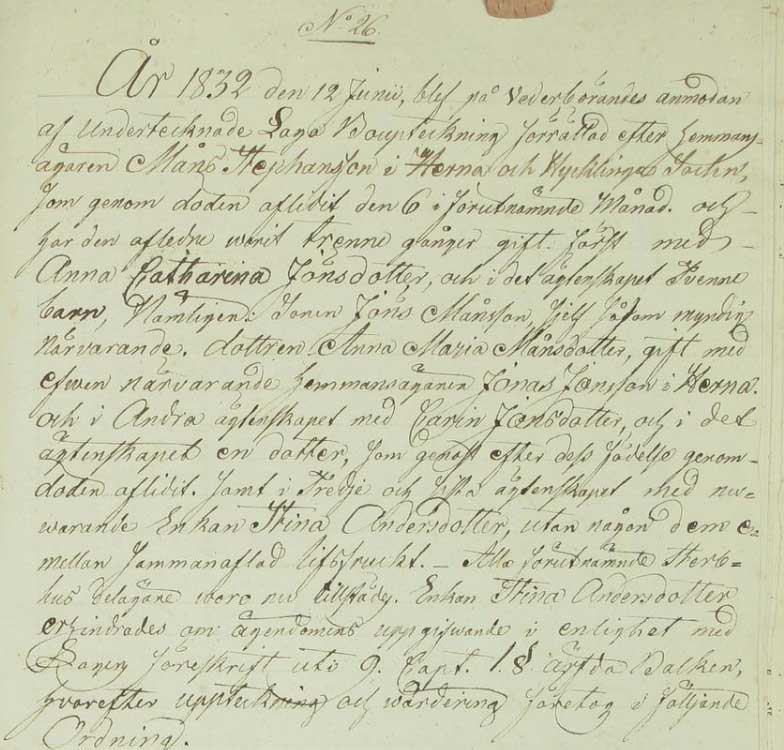 No 26.
År 1832 den 12 Junii, blef på Vederbörandes anmodan
af Undertecknade Laga Bouptekning förrättad efter Hemmans,
ägaren Måns Stephansson i Herna och Hycklinge Sockn,
som genom döden aflidit den 6 i förutnämnde Månad. och
har den aflidne warit trenne gånger gift. först med
Anna Catharina Jönsdotter, och i det ägtenskapet Tvenne
barn, Nämligen: Sonen Jöns Månsson, sjelf såsom myndig
närvarande. dottren Anna Maria Månsdotter, gift med
efwen närvarande Hemmansägaren Jonas Jonsson i Herna.
och i Andra ägtenskapet med Carin Jonsdotter, och i det
ägtenskapet en dotter, som genast efter dess födelse genom
döden aflidit. samt i Tredje och sista ägtenskapet med nu-
warande Enkan Stina Andersdotter, utan någon dem e=
mellan sammanaflad lifsfrukt. _ Alla förutnämnde Sterb=
hus delägare woro nu tillstädes. Enkan Stina Andersdotter
erhindrades om ägendomens uppgifwande i enlighet med
Lagens föreskrift uti 9. Capt. 1. §. ärfda Balken,
hvarefter upptekning och wärdering företog i följande
Ordning.